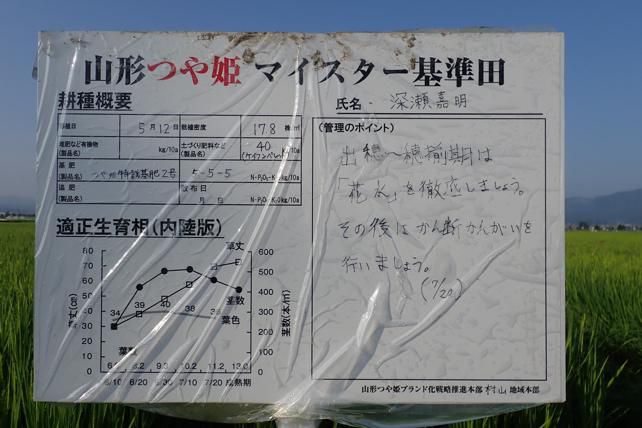 山形つや姫 マイスター基準田
耕種概要
氏名 深瀬嘉明
移植日 5月12日 栽植密度 17.8 株/㎡
堆肥など有機物 (製品名) kg/10a 土づくり肥料など (製品名) 40 (ケイフンペレット) kg/10a
基肥 (製品名) つや姫特栽基肥2号 5-5-5 N-P₂O₅-K₂Okg/10a
追肥 (製品名) 散布日 月 日 N-P₂O₅-K₂Okg/10a
(管理のポイント)
出穂〜穂揃期は
「花水」を徹底しましょう。
その後はかん断かんがいを
行いましょう。
(7/20)
適正生育相(内陸版)
草丈(cm)
80
70
60
50
40
30
20
34 39 40 38
草丈
茎数
葉色
600
500
400
300
200
100
0
茎数(本/㎡)
葉数
8.2 9.3 10.2 11.2 13.0
6/10 6/20 6/30 7/10 7/20 成熟期
山形つや姫ブランド化戦略推進本部 村山 地域本部